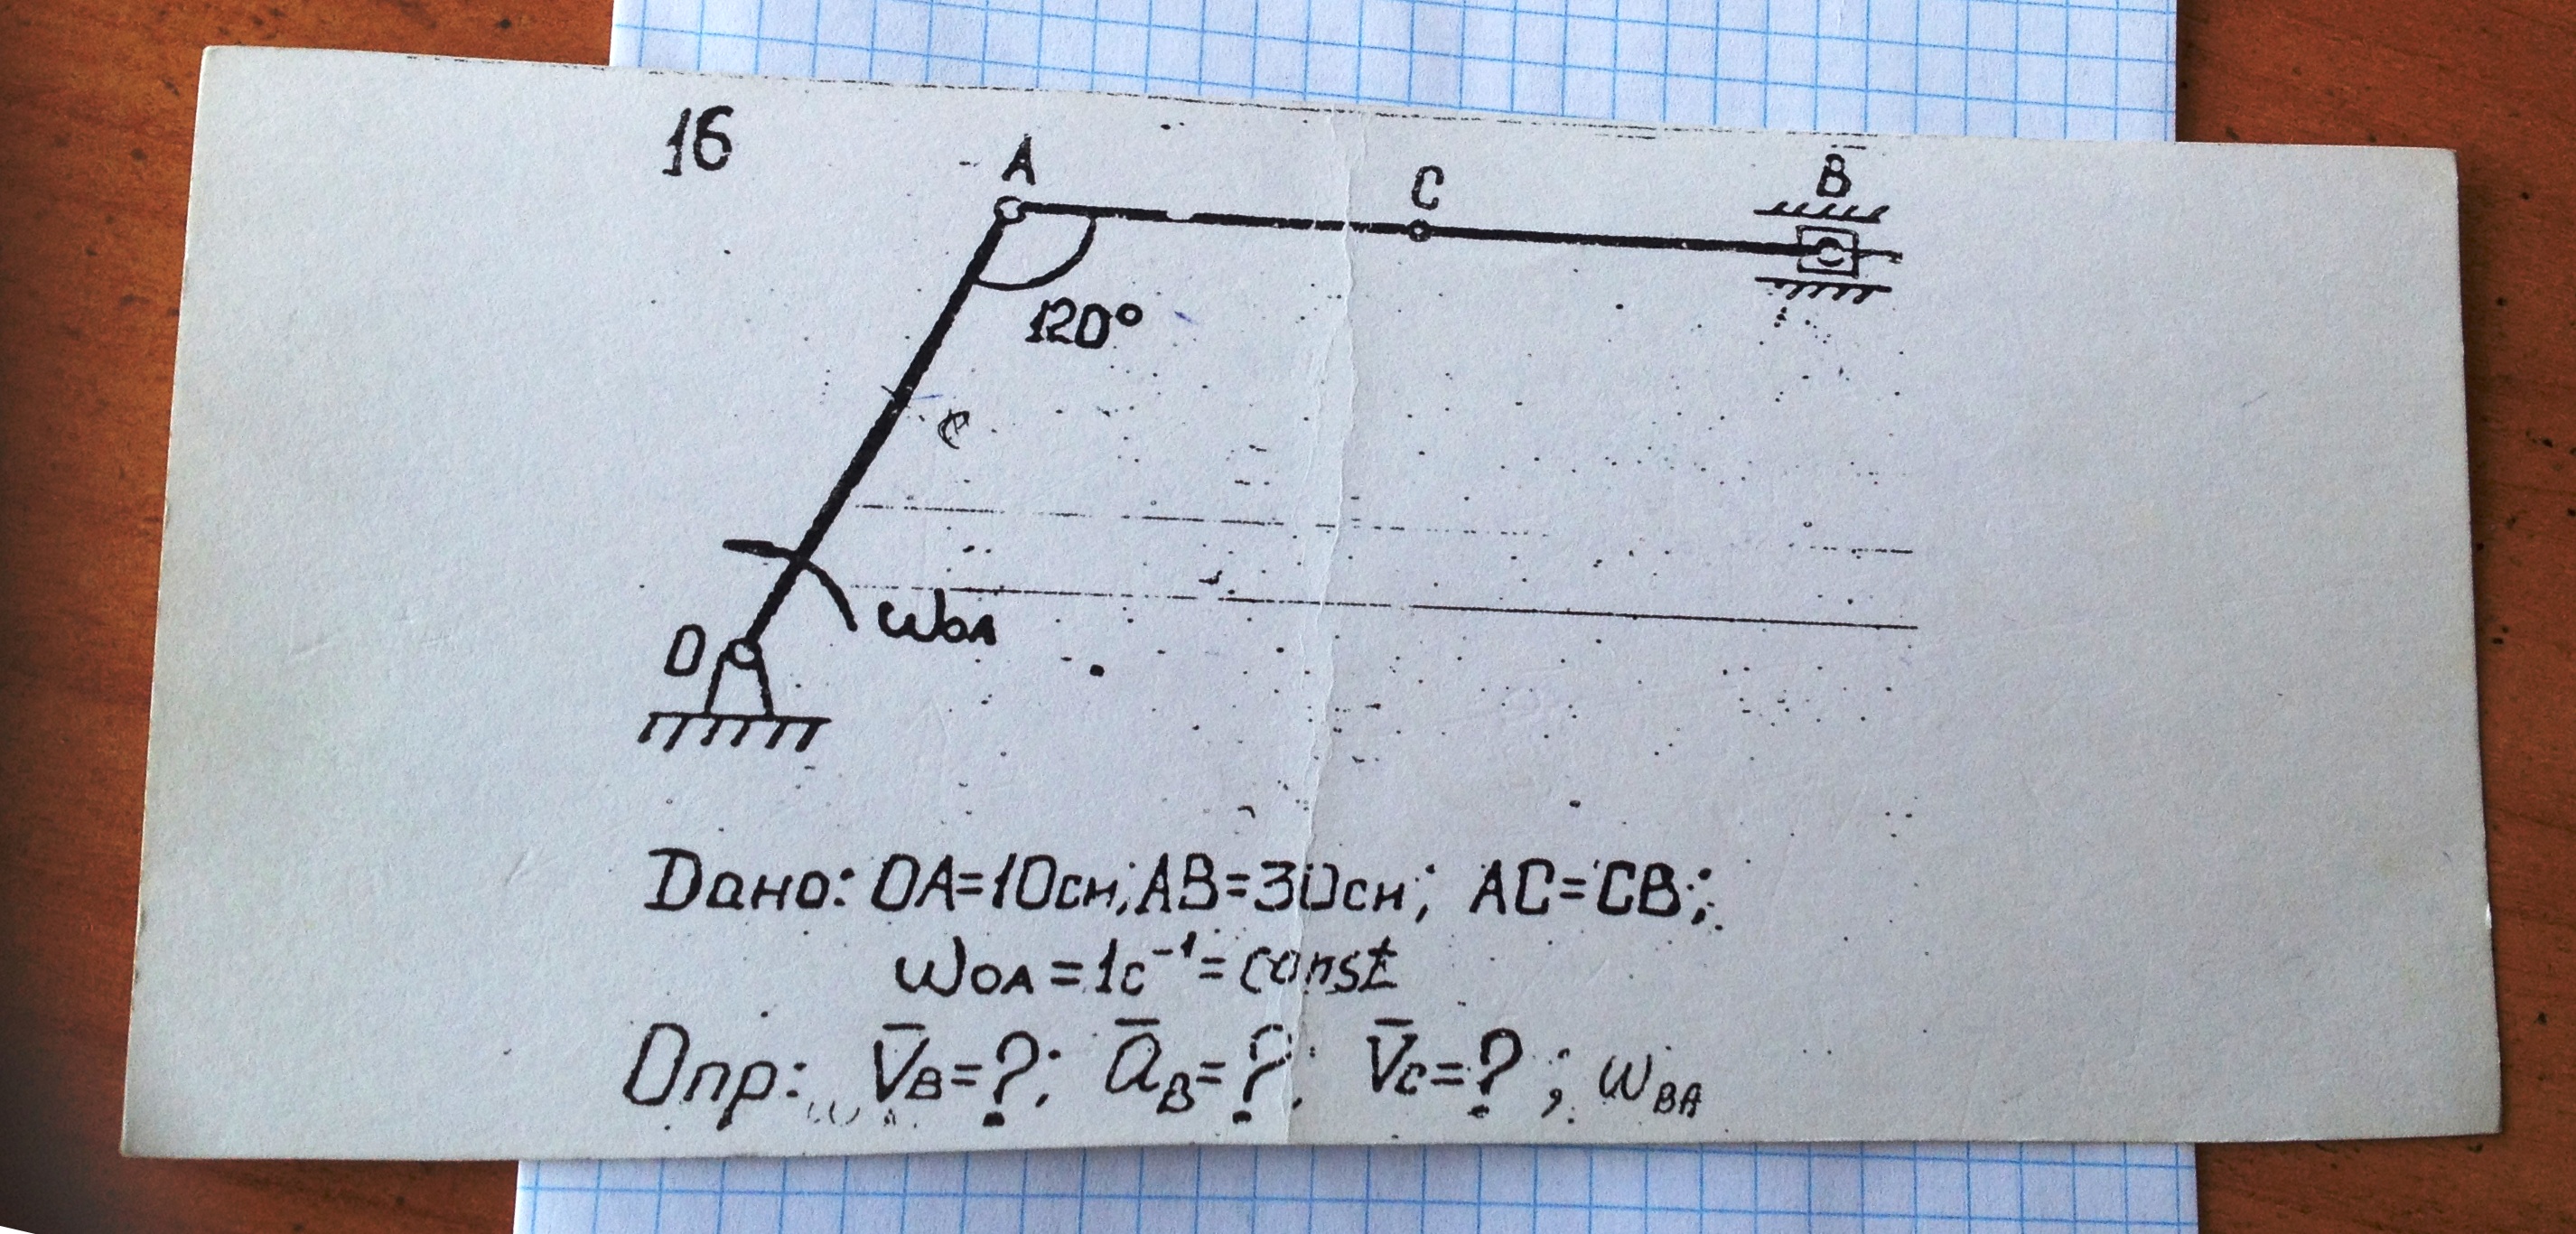 16
A
C
B
120°
c
ωOA
O
Дано: OA=10см; AB=30см; AC=CB;
ωOA=1c⁻¹=const
Опр: V̅B=?; a̅B=?; V̅c=?; ωBA